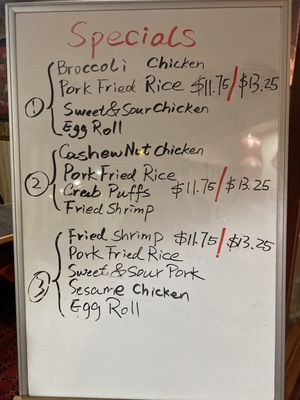 Specials
Broccoli Chicken
Pork Fried Rice $11.75/$13.25
① Sweet & Sour Chicken
Egg Roll
Cashew Nut Chicken
② Pork Fried Rice
Crab Puffs $11.75/$13.25
Fried Shrimp
Fried Shrimp $11.75/$13.25
Pork Fried Rice
③ Sweet & Sour Pork
Sesame Chicken
Egg Roll